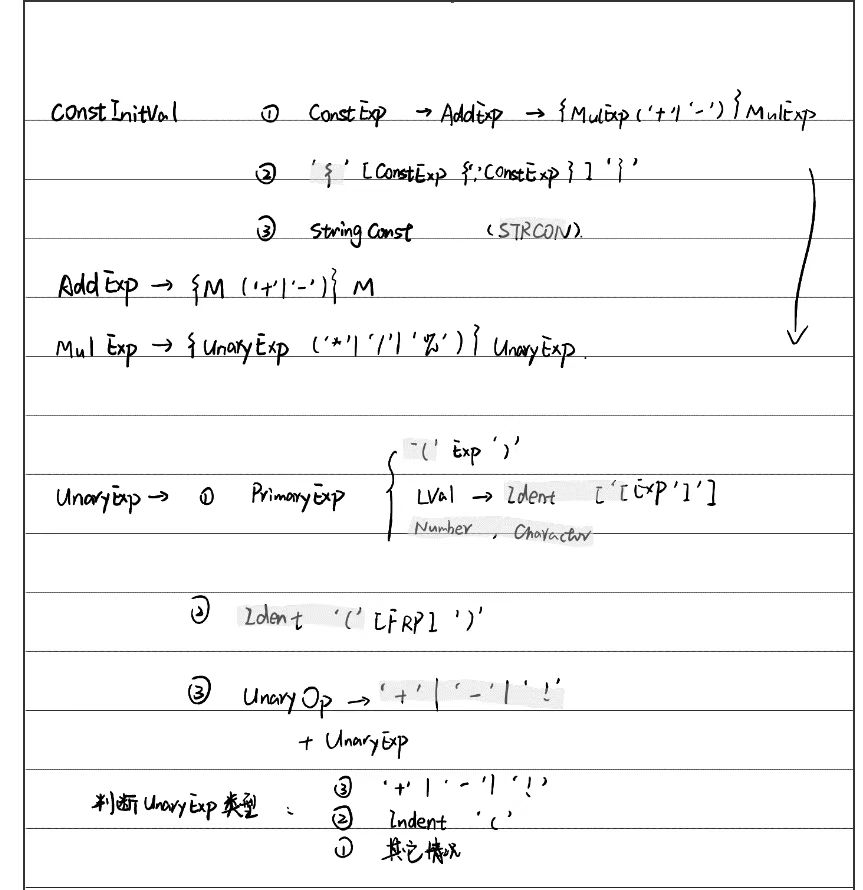 ConstInitVal ① ConstExp → AddExp → {MulExp('+'|'-')}MulExp
② '{' [ConstExp {','ConstExp}] '}'
③ StringConst (STRCON)
AddExp → {M ('+'|'-')} M
MulExp → {UnaryExp ('*'|'/'|'%')} UnaryExp.
'(' Exp ')'
UnaryExp → ① PrimaryExp { LVal → Ident ['[Exp']']
Number , Character
② Ident '(' [FRP] ')'
③ UnaryOp → '+'|'-'|'!'
+ UnaryExp
判断UnaryExp类型: ③ '+'|'-'|'!'
② Indent '('
① 其它情况